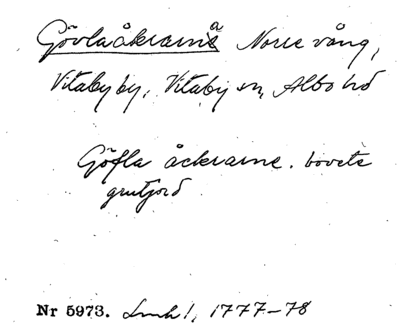 Gövlaåkrarna Norre vång,
Vitaby by, Vitaby sn, Albo hd
Göfla åckrarne. bovete
grutjord
Nr 5973. Lmh 1, 1777-78